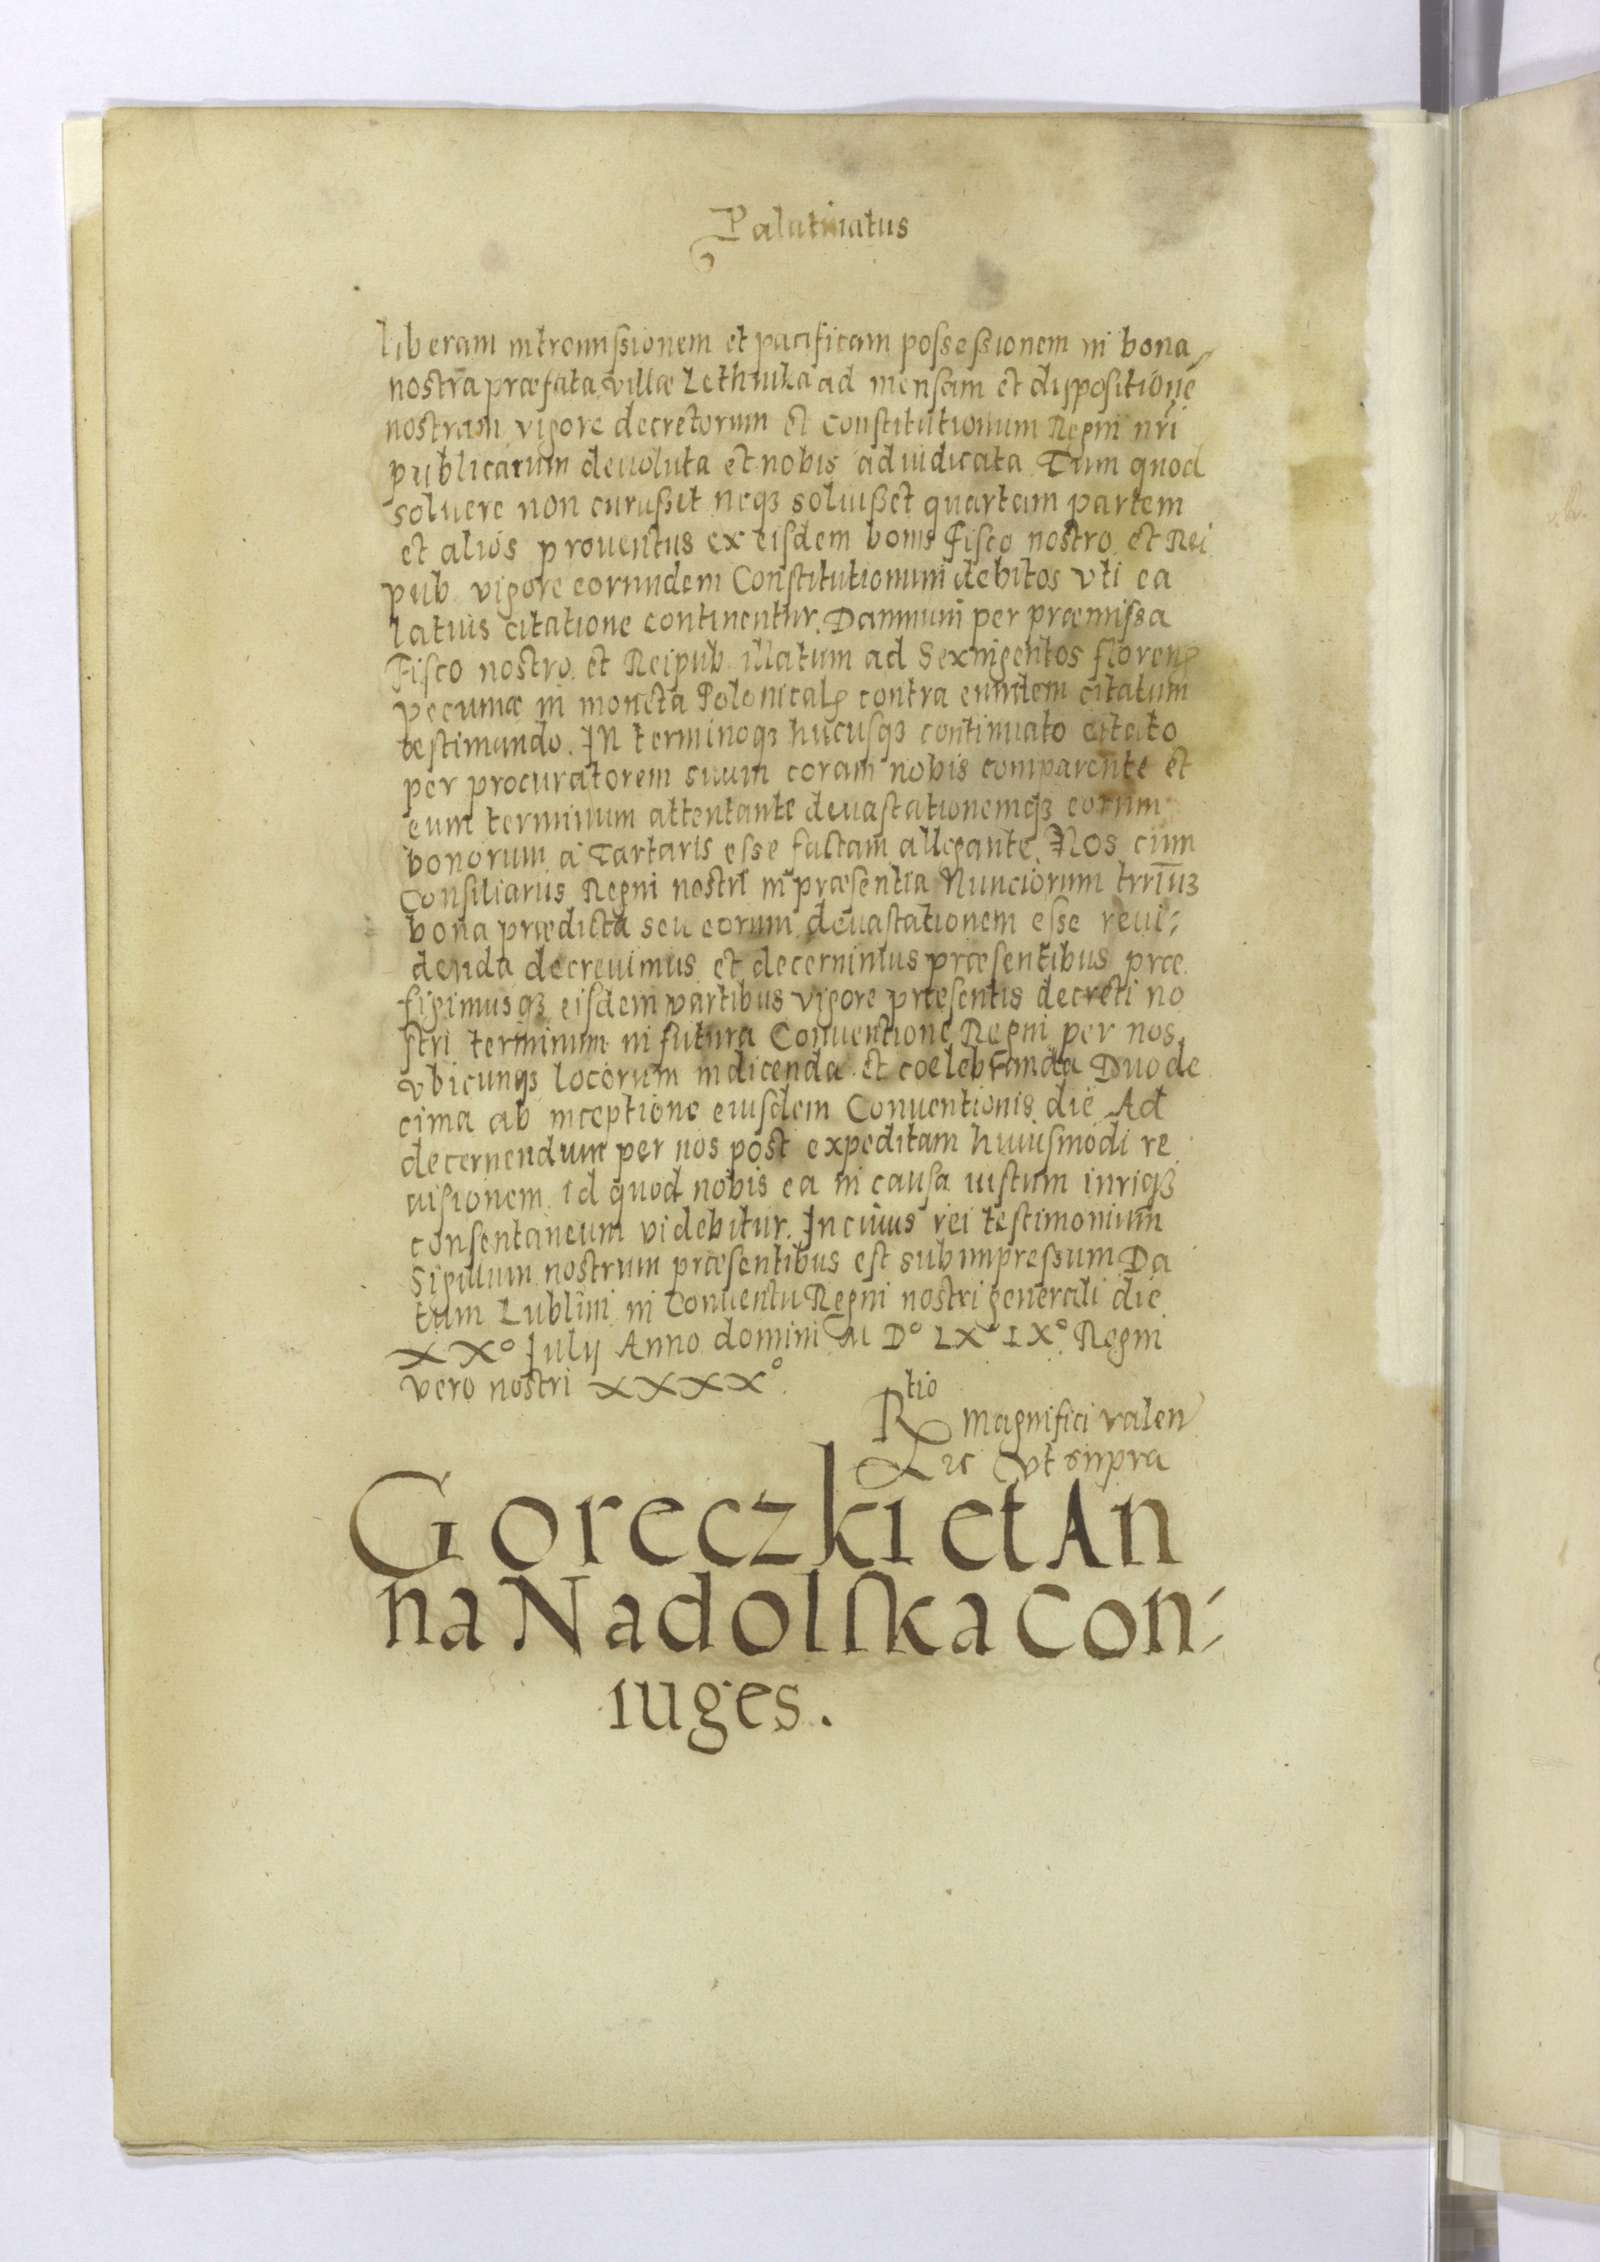 Palatinatus
liberam intromissionem et pacificam possessionem in bona
nostra præfata villæ Lethnika ad mensam et dispositionē
nostram vigore decretorum et Constitutionum Regni nri
publicarum deuoluta et nobis adiudicata Tum quod
soluere non curaßet neqꝫ soluißet quartam partem
et alios prouentus ex eisdem bonis Fisco nostro et Rei
pub vigore eorundem Constitutionum debitos vti ea
latius citatione continentur. Damnum per præmissa
Fisco nostro et Reipub illatum ad Sexingentos floren
pecuniæ in moneta Polonical contra eundem citatum
testimando. In terminoqꝫ hucusqꝫ continuato citato
per procuratorem suum coram nobis comparente et
eum terminum attentante deuastationemqꝫ eorum
bonorum a Tartaris esse factam allegante. Nos cum
Consiliariis Regni nostri in præsentia Nunciorum trrīuꝫ
bona prædicta seu eorum deuastationem esse reui⸗
denda decreuimus et decernimus præsentibus præ
figimusqꝫ eisdem partibus vigore præsentis decreti no
stri terminum in futura Conuentione Regni per nos
vbicunqꝫ locorum indicenda et coelebranda Duode
cima ab inceptione eiusdem Conuentionis die Ad
decernendum per nos post expeditam huiusmodi re
uisionem id quod nobis ea in causa iustum iuriqꝫ
consentaneum videbitur. In cuius rei testimonium
Sigillum nostrum præsentibus est subimpressum Da
tum Lublini in Conuentu Regni nostri generali die
XXº July Anno domini M Dº LXº IXº Regni
vero nostri XXXXº.
Rtio Magnifici valen
Lic vt supra
Goreczki et An
na Nadolſka Con⸗
iuges.